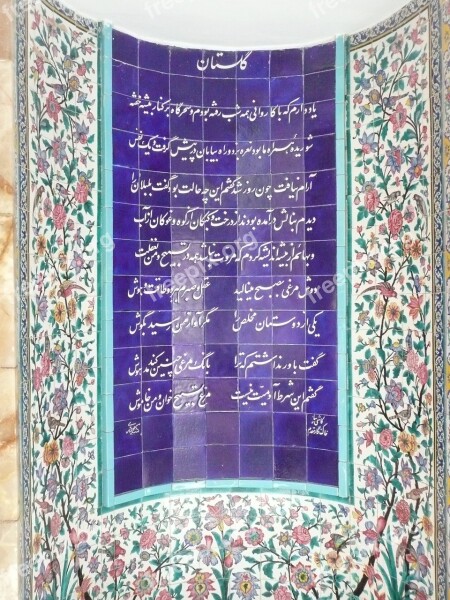 گلستان
یاد دارم که با کاروانی همه شب رفته بودم و سحرگاه بر کنار بیشه خفته
شوریده که همره ما بود نعره بزد و راه بیابان در پیش گرفت و یک نفس
آرام نیافت چون روز شد گفتم این چه حالت بود گفت بلبلان را
دیدم بنالش درآمده بودند از درخت و کبکان از کوه و غوکان از آب
و بهائم از بیشه اندیشه کردم که مروت نباشد همه در تسبیح و من بغفلت
دوش مرغی بصبح مینالید عقل و صبرم ببرد و طاقت و هوش
یکی از دوستان مخلص را مگر آواز من رسید بگوش
گفت باور نداشتم که ترا بانگ مرغی چنین کند مدهوش
گفتم این شرط آدمیت نیست مرغ تسبیح خوان و من خاموش
freepix.org